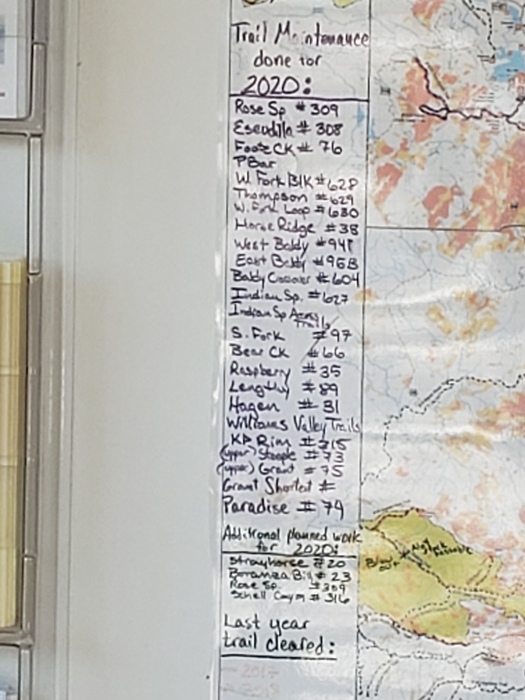 Trail Maintenance
done for
2020:
Rose Sp # 309
Escudilla # 308
Foote CK # 76
P Bar
W. Fork Blk # 628
Thompson # 629
W. Fork Loop # 630
Horse Ridge # 38
West Baldy # 94
East Baldy # 95B
Baldy # 604
Indian Sp. # 627
Indian Sp
Trails
S. Fork # 97
Bear CK # 66
Raspberry # 35
Lengthy # 89
Hagen # 31
Williams Valley Trails
KP Rim # 315
(upper) Steeple # 73
(upper) Grant # 75
Grant Shortcut #
Paradise # 74
Additional planned work
for 2020:
Strayhorse # 20
Bonanza Bill # 23
Rose Sp. # 309
Schell Canyn # 316
Last year
trail cleared:
Not